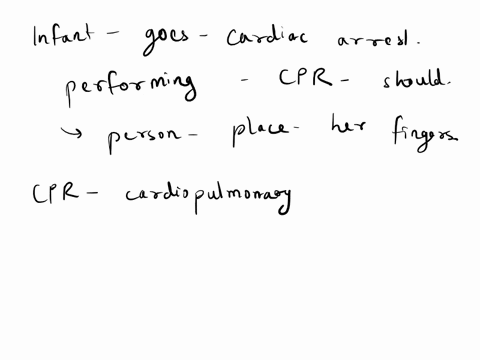 Infant - goes - cardiac arrest.
performing - CPR - should.
↳ person - place - her fingers
CPR - cardiopulmonary